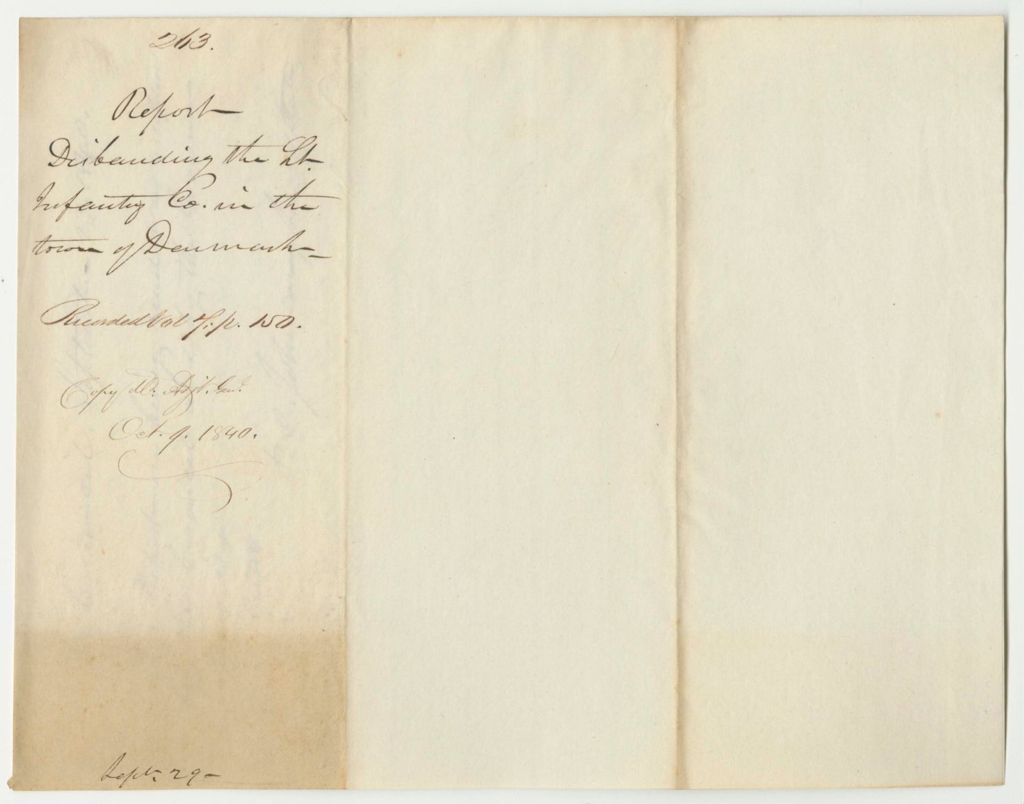 263.
Report
Disbanding the Lt.
Infantry Co. in the
town of Denmark
Recorded Vol 7. p. 150.
Copy Adjt. Genl.
Oct. 9. 1840.
Sept. 29